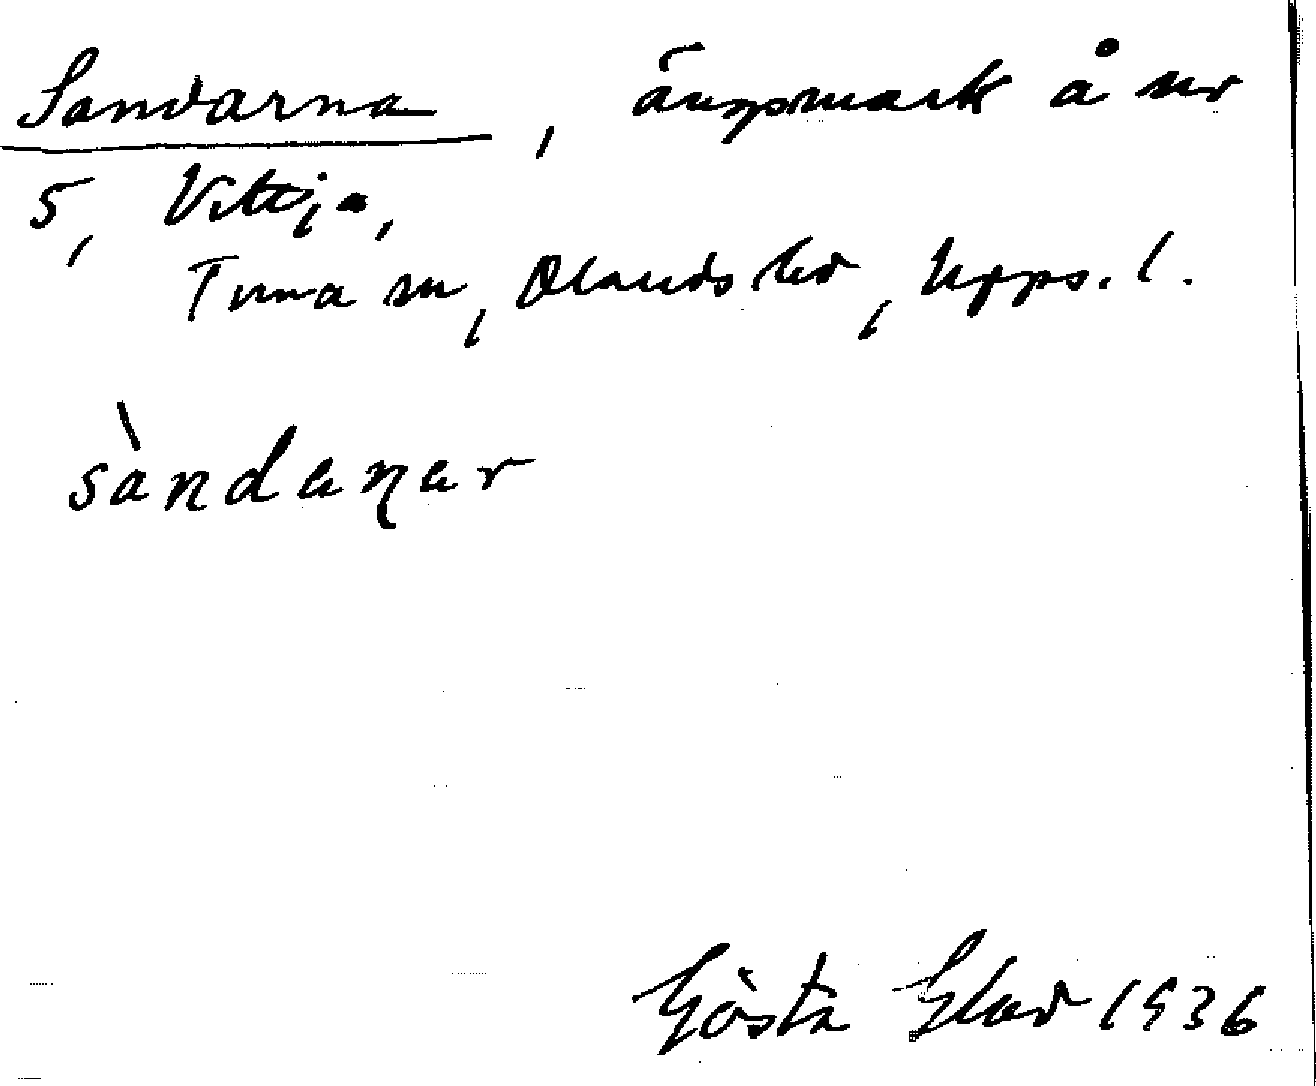 Sandarna, ängsmark å nr
5, Vittja,
Tuna sn, Olands hd, Upps. l.
sàndaṇar
Gösta Glad 1936